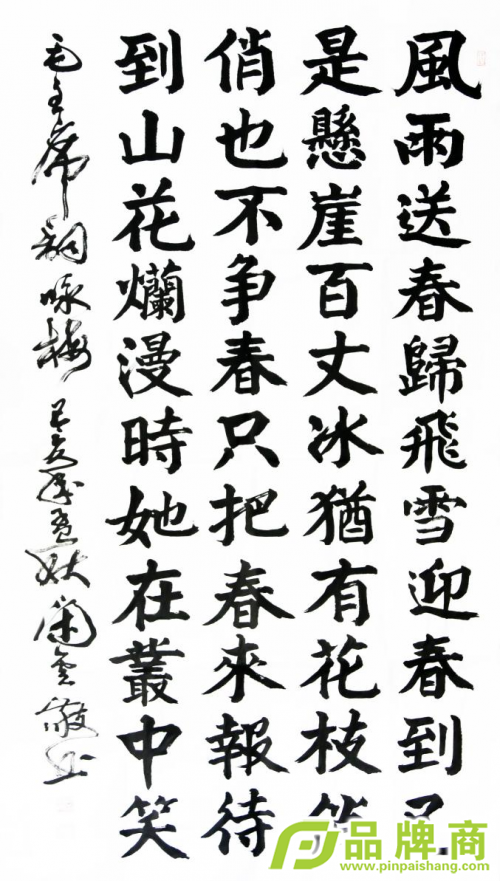 風雨送春歸飛雪迎春到已
是懸崖百丈冰猶有花枝俏
俏也不争春只把春來報待
到山花爛漫時她在叢中笑
毛主席詞咏梅
品牌商
www.pinpaishang.com